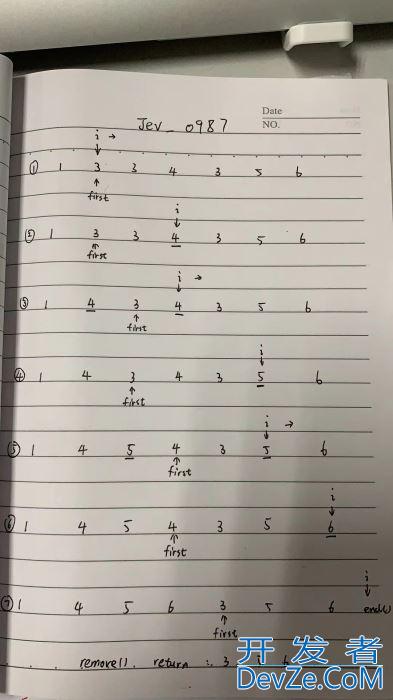 Date
Jev_0987
NO.
i →
↓
① 1 3 3 4 3 5 6
↑
first
i
↓
② 1 3 3 4 3 5 6
↑
first
i →
↓
③ 1 4 3 4 3 5 6
↑
first
i
↓
④ 1 4 3 4 3 5 6
↑
first
i →
↓
⑤ 1 4 5 4 3 5 6
↑
first
i
↓
⑥ 1 4 5 4 3 5 6
↑
first
i
↓
⑦ 1 4 5 6 3 5 6 end()
↑
first
remove() return : 3
开发者
DevZe.CoM